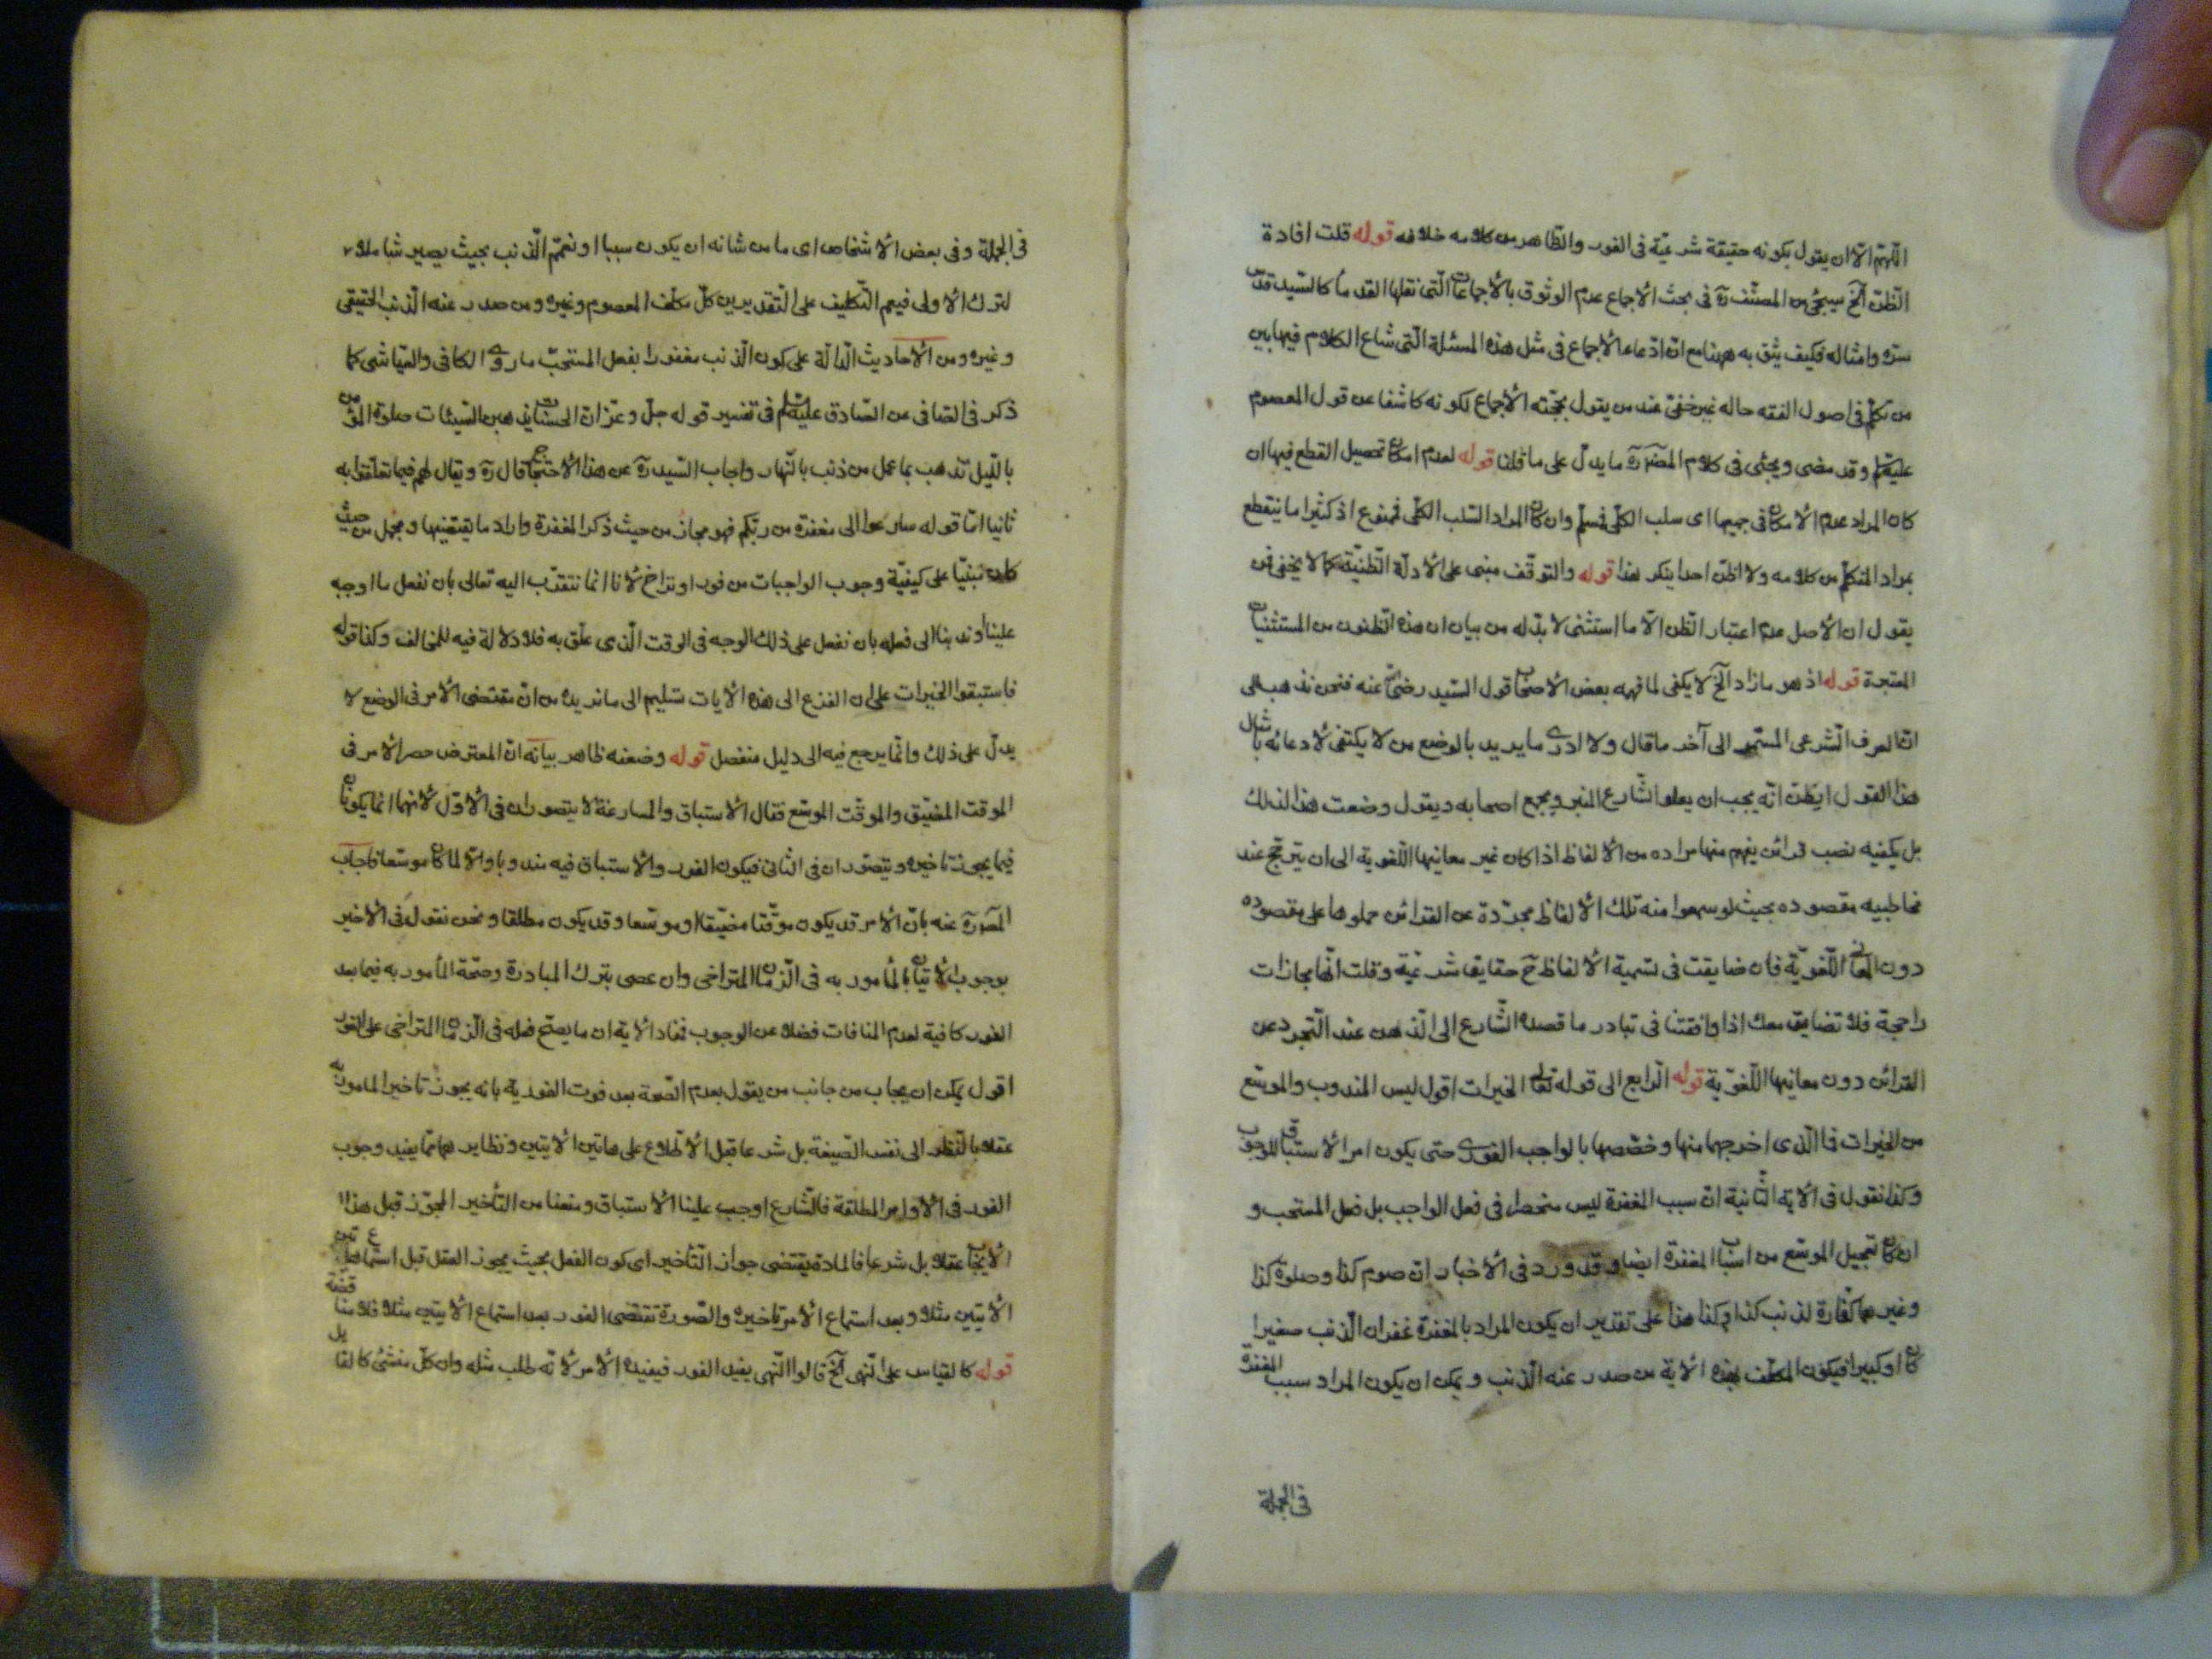 اللهم الا ان يقول بكونه حقيقة شرعية فى الفور والظاهر من كلامه خلافه قوله قلت افادة
الظن آلخ سيجئ من المصنف ره فى بحث الاجماع عدم الوثوق بالاجماعات التى نقلها القدما كالسيد قدس
سره وامثاله فكيف يثق به ههنا مع ان ادعاء الاجماع فى مثل هذه المسئلة التى شاع الكلام فيها بين
من تكلم فى اصول الفقه حاله غير خفى عند من يقول بحجته الاجماع لكونه كاشفا عن قول المعصوم
عليه السلم وقد مضى ويجئى فى كلام المصره ما يدل على ما قلنا قوله لعدم امكان تحصيل القطع فيها ان
كان المراد عدم الامكان فى جميعها اى سلب الكلى فمسلم وان كان المراد السلب الكلى فممنوع اذ كثيرا ما ينقطع
بمراد المتكلم من كلامه ولا اظن احدا ينكر هذا قوله والتوقف مبنى على الادلة الظنية كما لا يخفى فمن
يقول ان الاصل عدم اعتبار الظن الا ما استثنى لا بد له من بيان ان هذه الظنون من المستثنيات
المعتبرة قوله اذ هو ما زاد آلخ لا يكفى لما فهمه بعض الاصحاب قول السيد رضى عنه فنحن نذهب الى
ان العرف الشرعى المستمر الى آخر ما قال ولا ادرى ما يريد بالوضع من لا يكتفى لادعائه بامثال
هذا القول ايظن انه يجب ان يعلو الشارع المنبر ويجمع اصحابه ويقول وضعت هذا لذلك
بل يكفيه نصب قرائن يفهم منها مراده من الالفاظ اذا كان غير معانيها اللغوية الى ان يترجح عند
مخاطبيه مقصوده بحيث لو سمعوا منه تلك الالفاظ مجردة عن القرائن حملوها على مقصوده
دون المعانى اللغوية فان ضايقت فى تسمية الالفاظ ح حقايق شرعية وقلت انها مجازات
راجحة فلا تضايق معك اذا وافقتنا فى تبادر ما قصده الشارع الى الذهن عند التجرد عن
القرائن دون معانيها اللغوية قوله الرابع الى قوله تعالى الخيرات اقول ليس المندوب والموسع
من الخيرات فما الذى اخرجهما منها وخصصها بالواجب الفورى حتى يكون امر الاستباق للوجوب
وكذا نقول فى الاية الثانية ان سبب المغفرة ليس منحصرا فى فعل الواجب بل فعل المستحب و
ان كان تعجيل الموسع من اسباب المغفرة ايضا وقد ورد فى الاخبار ان صوم كذا وصلوة كذا
وغيرهما كفارة لذنب كذا وكذا هذا على تقدير ان يكون المراد بالمغفرة غفران الذنب صغيرا
كان او كبيرا فيكون المكلف بهذه الاية من صدر عنه الذنب ويمكن ان يكون المراد سبب المغفرة
فى الجملة
فى الجملة وفى بعض الاشخاص اى ما من شانه ان يكون سببا او نعمم الذنب بحيث يصير شاملا
لترك الاولى فيعم التكليف على التقديرين كل مكلف المعصوم وغيره ومن صدر عنه الذنب الحقيقى
وغيره ومن الاحاديث الدالة على كون الذنب مغفورا بفعل المستحب ما روى الكافى والعياشى كما
ذكر فى الصافى عن الصادق عليه السلم فى تفسير قوله جل وعز ان الحسنات يذهبن السيئات صلوة المؤمن
بالليل تذهب بما عمل من ذنب بالنهار واجاب السيد ره عن هذا الاحتجاج قال ره ويقال لهم فيما تعلقوا به
ثانيا اما قوله سارعوا الى مغفرة من ربكم فهو مجاز من حيث ذكر المغفرة واراد ما يقتضيها ومجمل من حيث
كان مبنيا على كيفية وجوب الواجبات من فور او تراخ لانا انما نتقرب اليه تعالى بان نفعل ما اوجبه
علينا او ندبنا الى فعله بان نفعل على ذلك الوجه فى الوقت الذى علق به فلا دلالة فيه للمخالف وكذا قوله
فاستبقوا الخيرات على ان الفزع الى هذه الايات تسليم الى ما نريده من ان مقتضى الامر فى الوضع لا
يدل على ذلك وانما يرجع فيه الى دليل منفصل قوله وضعفه ظاهر بيانه ان المعترض حصر الامر فى
الموقت المضيق والموقت الموسع فقال الاستباق والمسارعة لا يتصوران فى الاول لانهما انما يكونان
فيما يجوز تاخيره ويتصوران فى الثانى فيكون الفور والاستباق فيه مندوبا والا لما كان موسعا فاجاب
المصره عنه بان الامر قد يكون موقتا مضيقا او موسعا وقد يكون مطلقا ونحن نقول فى الاخير
بوجوب الاتيان بالمأمور به فى الزمان المتراخى وان عصى بترك المبادرة وصحة المأمور به فيما بعد
الفور كافية لعدم المنافات فضلا عن الوجوب فمفاد الاية ان ما يصح فعله فى الزمان المتراخى على الفور
اقول يمكن ان يجاب من جانب من يقول بعدم الصحة بعد فوت الفورية بانه يجوز تاخير المامور به
عقلا بالنظر الى نفس الصيغة بل شرعا قبل الاطلاع على هاتين الايتين ونظايرهما مما يفيد وجوب
الفور فى الاوامر المطلقة فالشارع اوجب علينا الاستباق ومنعنا من التأخير المجوز قبل هذا
الايجاب عقلا بل شرعا فالمادة يقتضى جواز التأخير اى كون الفعل بحيث يجوز العقل قبل استماع هاتين
الايتين مثلا وبعد استماع الامر تاخيره والصورة تقتضى الفور بعد استماع الايتين مثلا فلا مناقضة
قوله كالقياس على النهى آلخ قالوا النهى يفيد الفور فيفيده الامر لانه طلب مثله وان كل منشئ كالقايل